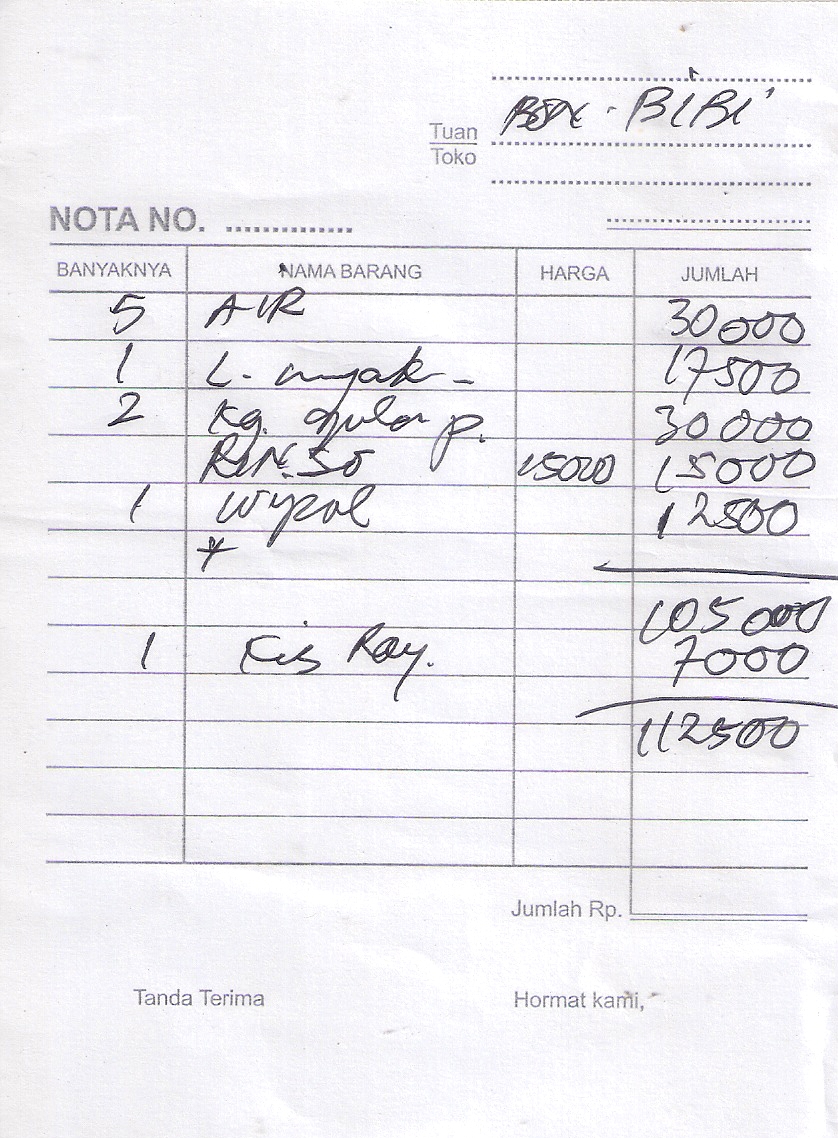 Tuan
Toko
BIBI
NOTA NO. ..............
BANYAKNYA NAMA BARANG HARGA JUMLAH
5 AIR 30000
1 L. myak - 17500
2 Kg. gula p. 30000
RINSO 15000 15000
1 wypol 12500
105000
1 Ray. 7000
112500
Jumlah Rp.
Tanda Terima Hormat kami,